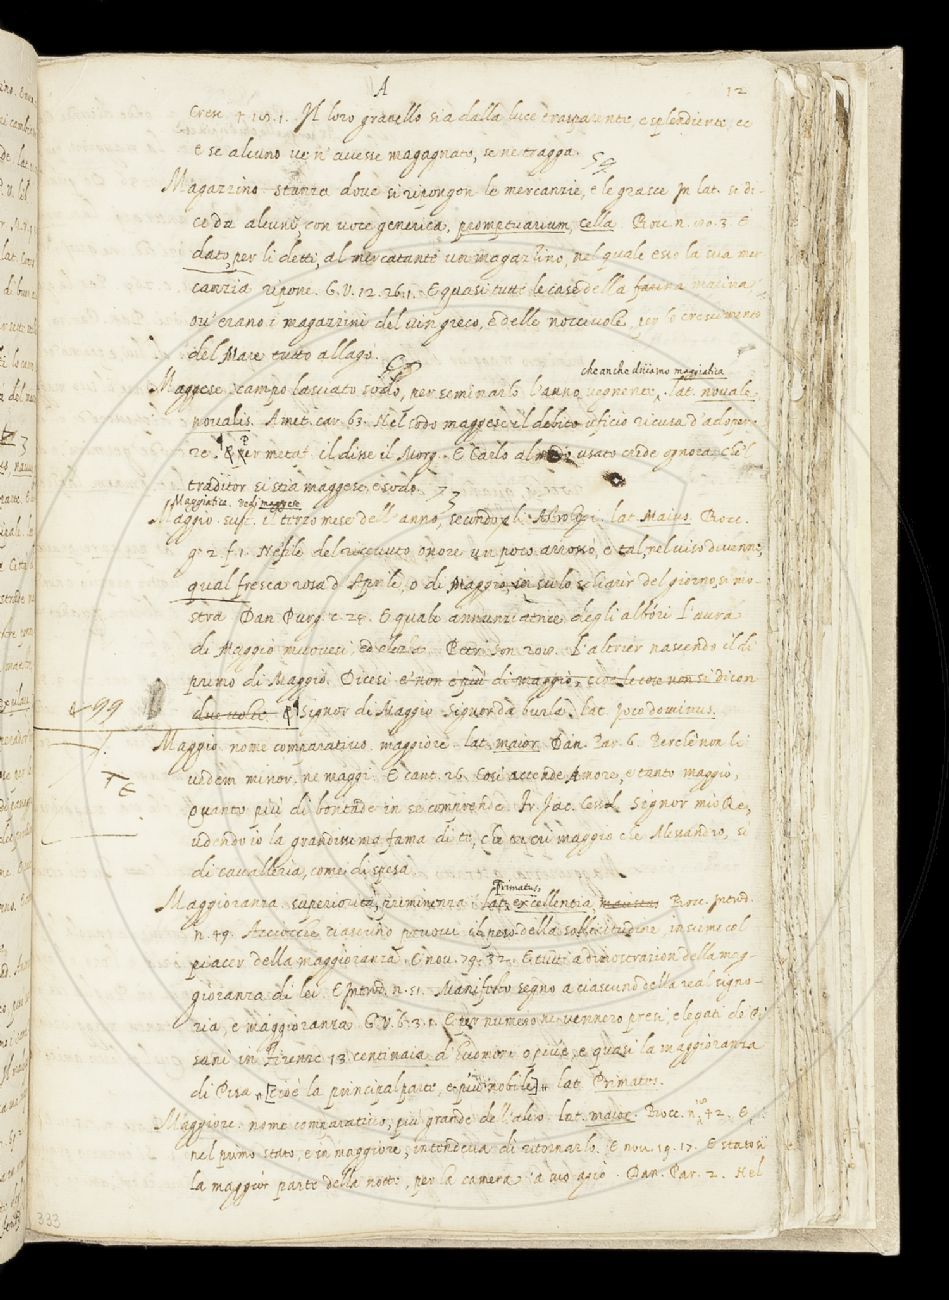 A
12
Cresc. 4. 105. 1. Il loro granello sia dalla luce trasparente, e splendiente, ec
e se alcuno ve n' avesse magagnato, se ne tragga.
Magazzino stanza dove si ripongon le mercanzie, e le grasce. In lat. si di-
ce da alcuni, con voce generica, promptuarium, cella. Bocc. n. 80. 3. E
dato per li detti, al mercatante un magazzino, nel quale esso la sua mer
canzia ripone. G. V. 12. 26. 1. E quasi tutte le case della marina
ov' erano i magazzini del vin greco, e delle nocciuole, per lo crescimento
del Mare tutto allagò.
che anche diciamo maggiatica
Maggese. campo lasciato sodo, per seminarlo l' anno vegnente, lat. novale,
novalis. Amet. car. 63. Nel codo maggese il debito uficio ricusa d' adoper
re. per metaf. il disse il Morg. E Carlo al usato crede ognora. Che 'l
traditor si stia maggese, e sodo.
Maggiatica. vedi maggese
Maggio. sust. il terzo mese dell' anno, secondo gli Astrologi. lat. Maius. Bocc.
g. 2. f. 1. Neifile del ricevuto onore un poco arrossò, e tal, nel viso divenne,
qual fresca rosa d' Aprile, o di Maggio, in sulo schiarir del giorno, si mo-
stra. Dan. Purg. c. 24. E quale annunziatrice degli albóri L' aura
di Maggio muovesi, ed olezza. Petr. Son. L' altrier nascendo il dì
primo di Maggio. Dicesi e' non è più di maggio, cioè le cose non si dicon
due volte. Signor di Maggio Signor da burla. lat. joco dominus.
99
Maggio. nome comparativo. maggiore. lat. maior. Dan. Par. 6. Perchè non li
vedem minor, ne maggi. E cant. 26. Così accende Amore, e tanto maggio,
quanto più di bontade in se comprende. Fr. Jac. Cess. Signor mio Re,
udendo io la grandissima fama di te, che tu eri maggio che Alexandro, sì
di cavalleria, come di spesa.
Primatus,
Maggioranza. superiorità, preminenza. lat. excellentia Bocc. Introd.
n. 49. Acciocchè ciascuno pruovi il peso della sollicitudine, insieme col
piacer della maggioranza. E nov. 79. 32. E tutti a dimostrazion della mag-
gioranza di lei. E Introd. n. 51. Manifesto segno a ciascuno della real signo-
ria, e maggioranza. G. V. 6. 3. 1. E per numero ne vennero presi, e legati de' Pi
sani in Firenze 13 centinaia d' huomini, o più, e quasi la maggioranza
di Pisa [cioè la principal parte, e più nobile] lat. Primates.
Maggiore. nome comparativo, più grande dell' altro. lat. maior. Bocc. n. 42. E
nel primo stato, e in maggiore, intendeva di ritornarlo. E nov. 19. 17. E statosi
la maggior parte della notte, per la camera a suo agio. Dan. Par. 2. Nel
333